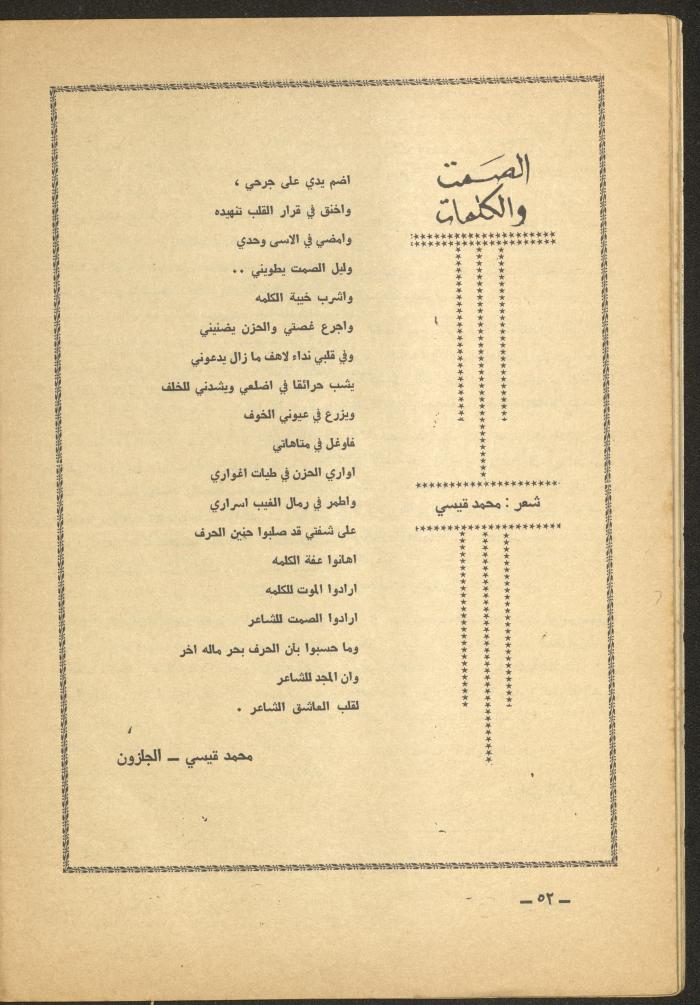 الصمت
والكلمات
شعر : محمد قيسي
اضم يدي على جرحي ،
واخنق في قرار القلب تنهيده
وامضي في الاسى وحدي
وليل الصمت يطويني ..
واشرب خيبة الكلمه
واجرع غصتي والحزن يضنيني
وفي قلبي نداء لاهف ما زال يدعوني
يشب حرائقا في اضلعي ويشدني للخلف
ويزرع في عيوني الخوف
فاوغل في متاهاتي
اواري الحزن في طيات اغواري
واطمر في رمال الغيب اسراري
على شفتي قد صلبوا حنين الحرف
اهانوا عفة الكلمه
ارادوا الموت للكلمه
ارادوا الصمت للشاعر
وما حسبوا بان الحرف بحر ماله اخر
وان المجد للشاعر
لقلب العاشق الشاعر .
محمد قيسي ــ الجازون
ــ ٥٢ ــ